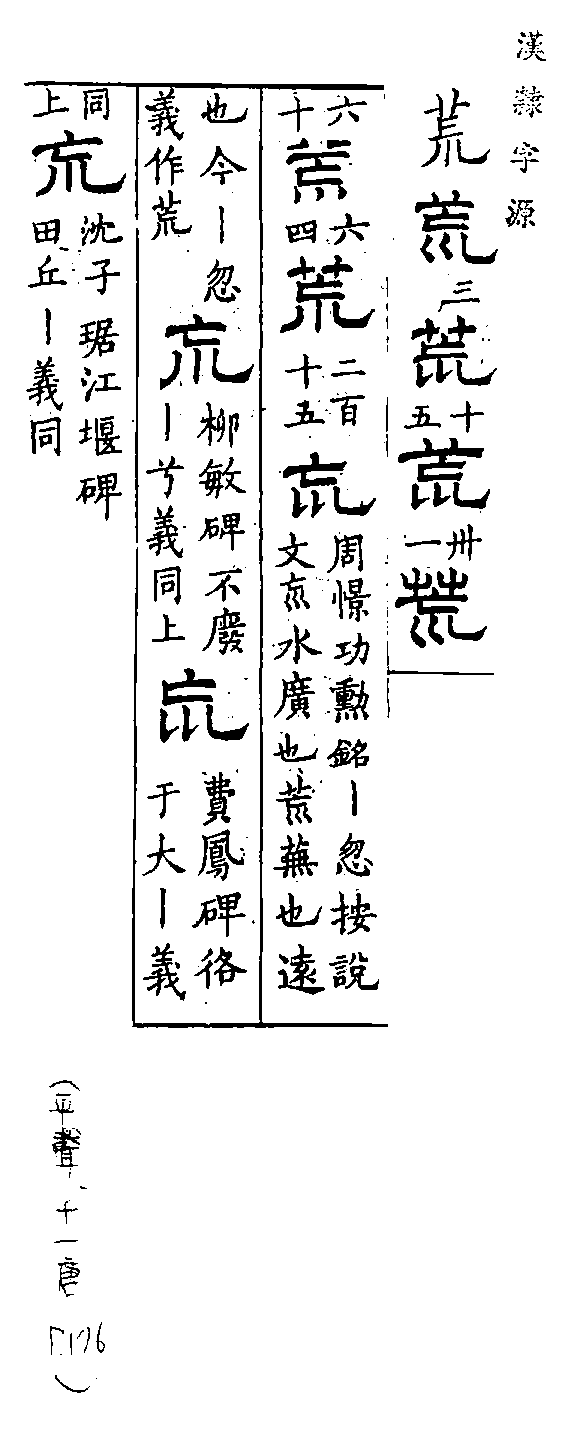 漢隸字源
荒 荒 三 荒 十五 荒 卅一 荒
六十 荒 六四 荒 二百十五 巟 周憬功勳銘丨忽按說文巟水廣也荒蕪也遠
也今丨忽義作荒 巟 柳敏碑不廢丨兮義同上 巟 費鳳碑佫于大丨義
同上 巟 沈子琚江堰碑田丘丨義同
(平聲、十一唐 P.176)